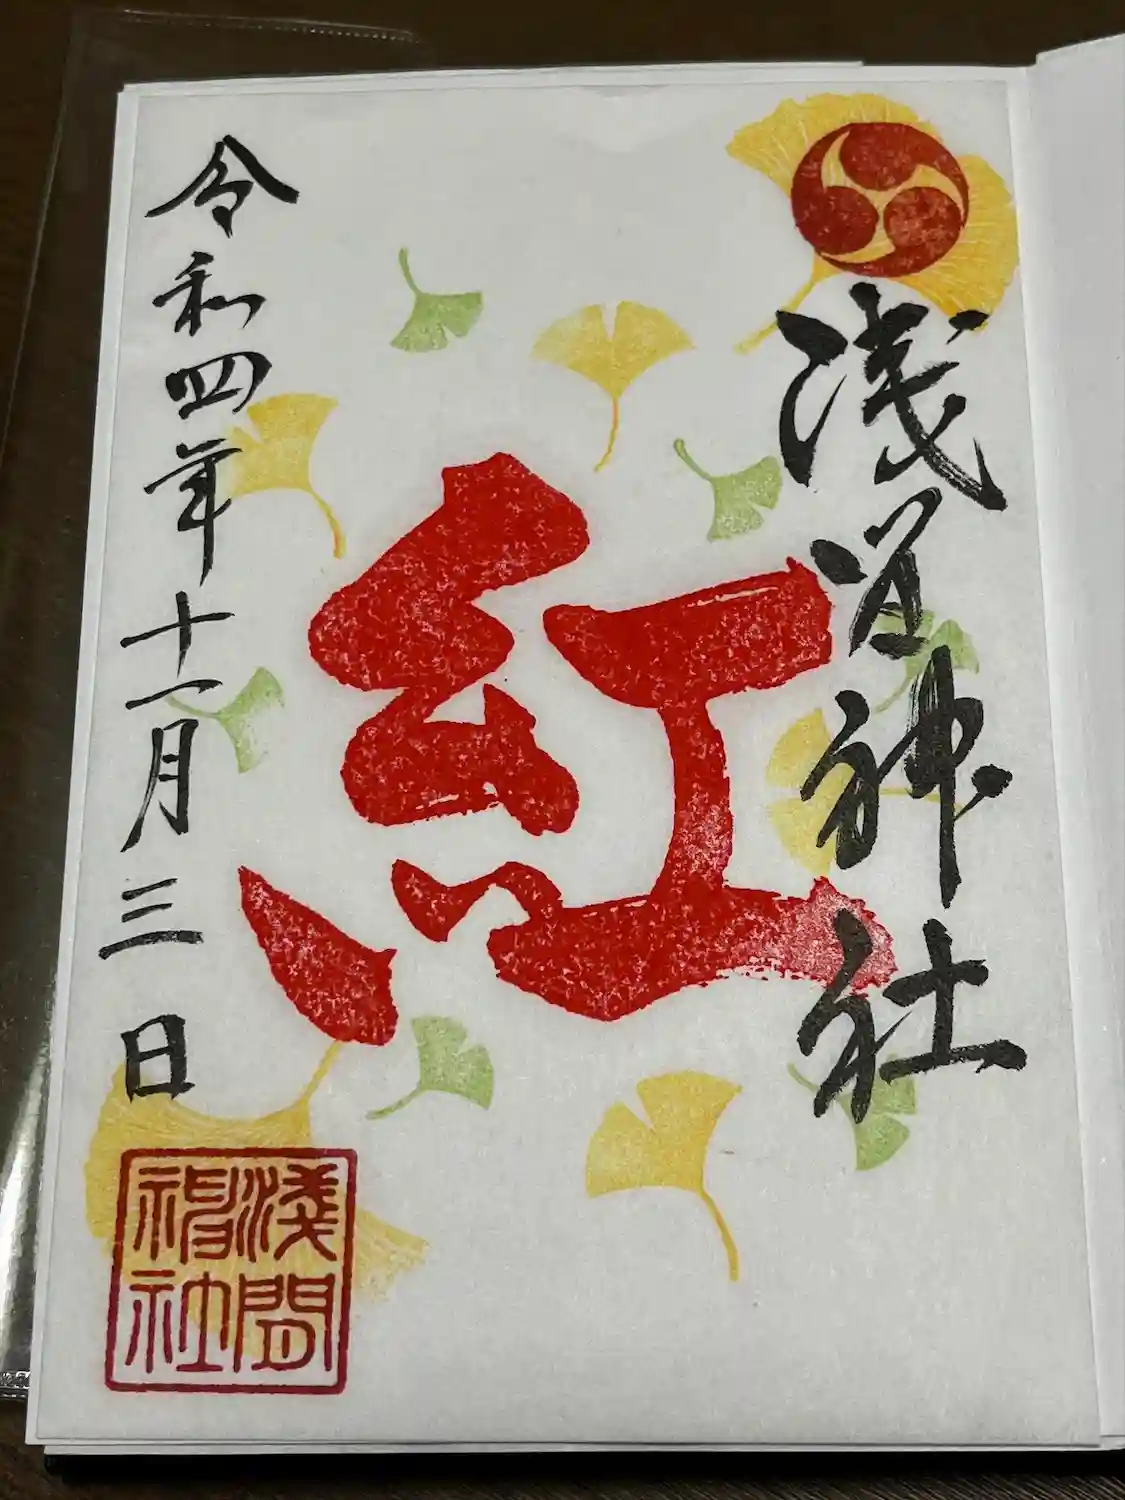 浅間神社
紅
令和四年十一月三日
淺間
神社